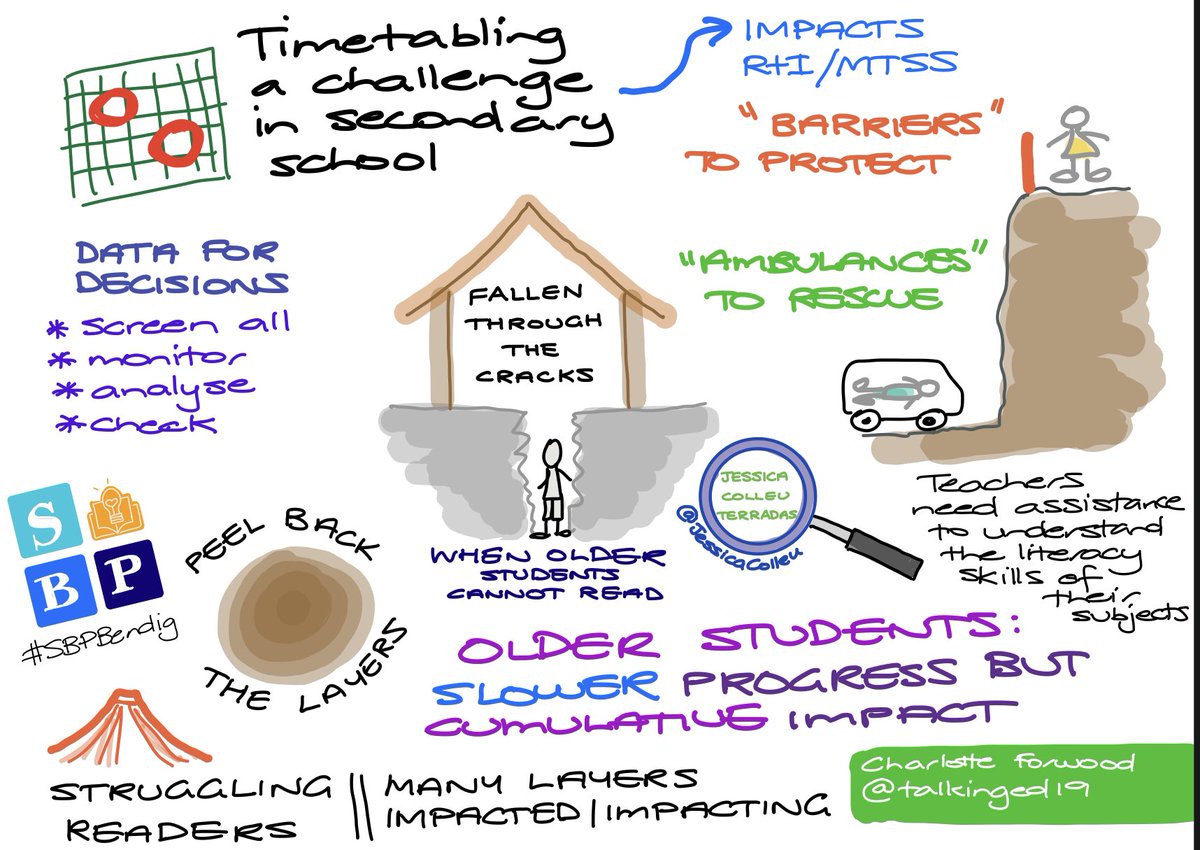 Timetabling
a challenge
in secondary
school
IMPACTS
RtI/MTSS
"BARRIERS"
TO PROTECT
"AMBULANCES"
TO RESCUE
DATA FOR
DECISIONS
* screen all
* monitor
* analyse
* check
FALLEN
THROUGH
THE
CRACKS
WHEN OLDER
STUDENTS
CANNOT READ
JESSICA
COLLEU
TERRADAS
@JessicaColleu
Teachers
need assistance
to understand
the literacy
skills of
their
subjects
S
B P
#SBPBendig
PEEL BACK
THE LAYERS
OLDER STUDENTS:
SLOWER PROGRESS BUT
CUMULATIVE IMPACT
STRUGGLING
READERS
MANY LAYERS
IMPACTED/IMPACTING
Charlotte Forwood
@talkinged19